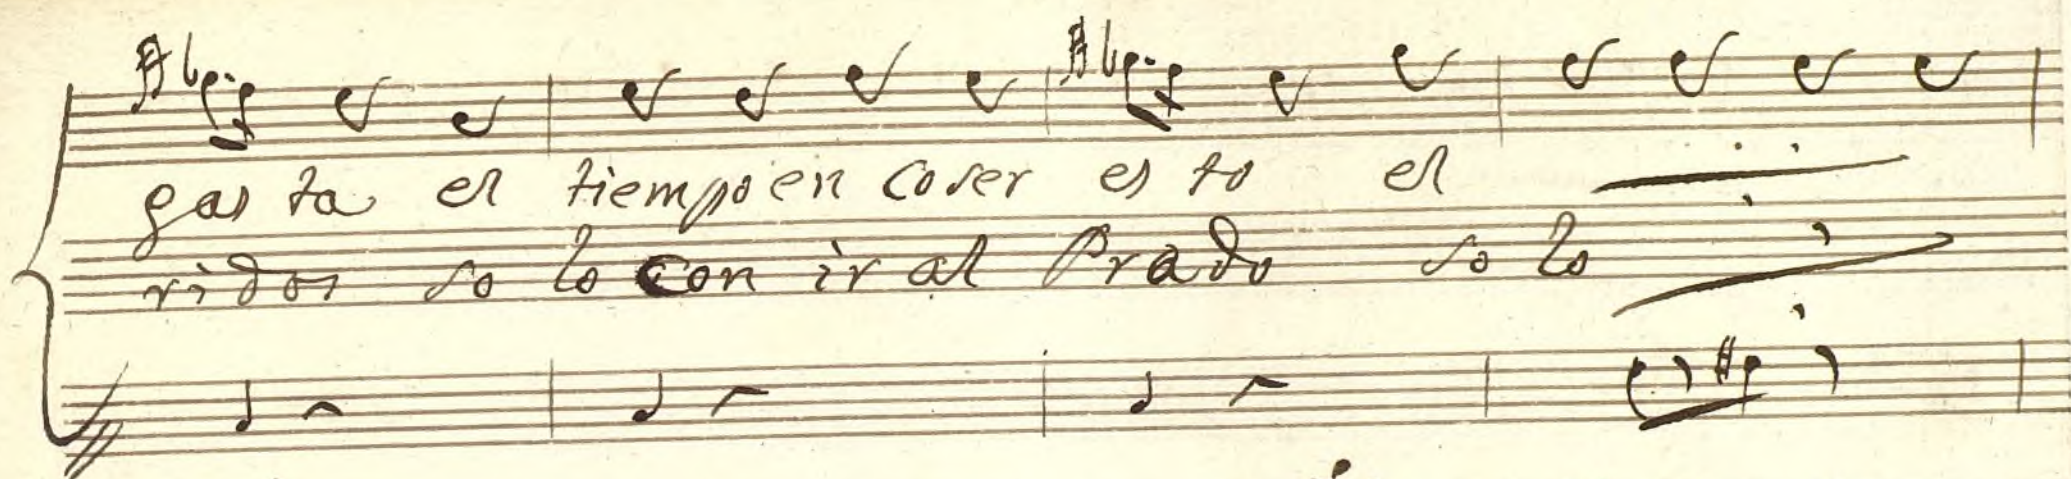 gas ta el tiempo en coser es to el
ridos so lo con ir al Prado so lo